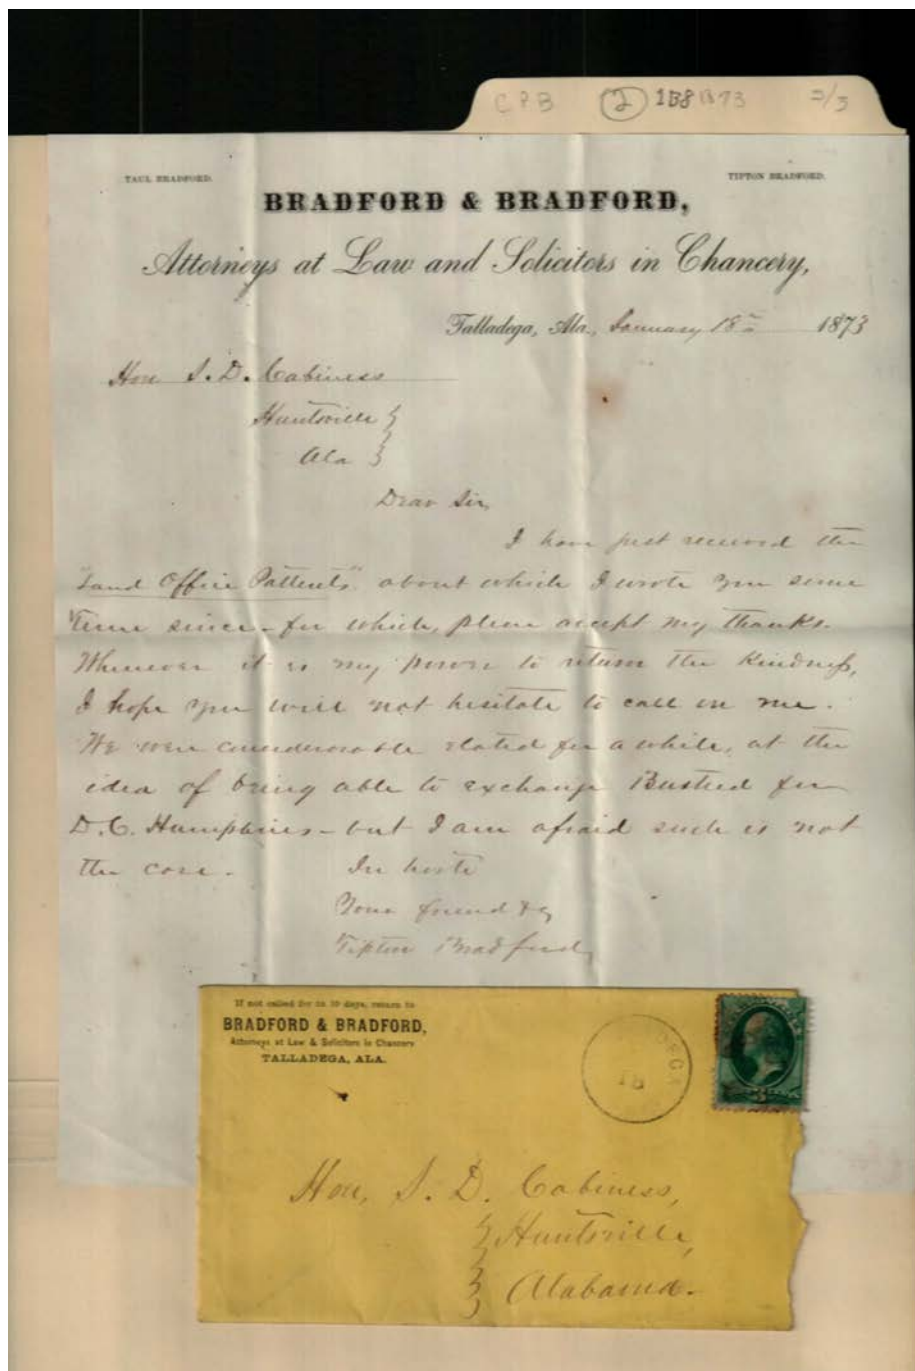 CPB (2) 1B8 B73 2/3
TAUL BRADFORD.
TIPTON BRADFORD.
BRADFORD & BRADFORD,
Attorneys at Law and Solicitors in Chancery,
Talladega, Ala., January 18th 1873
Hon S. D. Cabiness
Huntsville
Ala
Dear Sir,
I have just received the
"Land Office Pattents" about which I wrote you some
time since - for which, please accept my thanks.
Whenever it is my power to return the kindness,
I hope you will not hesitate to call on me.
We were considerable elated for a while, at the
idea of being able to exchange Busteed for
D. C. Humphries - but I am afraid such is not
the case.
In haste
Your friend &c
Tipton Bradford
If not called for in 10 days, return to
BRADFORD & BRADFORD,
Attorneys at Law & Solicitors in Chancery
TALLADEGA, ALA.
18
Hon, S. D. Cabiness,
Huntsville,
Alabama.